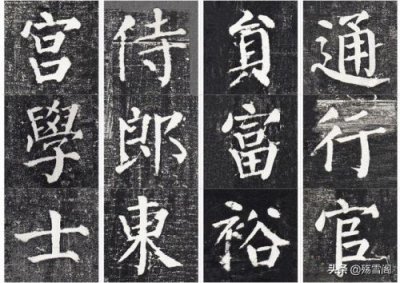 通行官
員富裕
侍郎東
宮學士
头条@殇雪阁